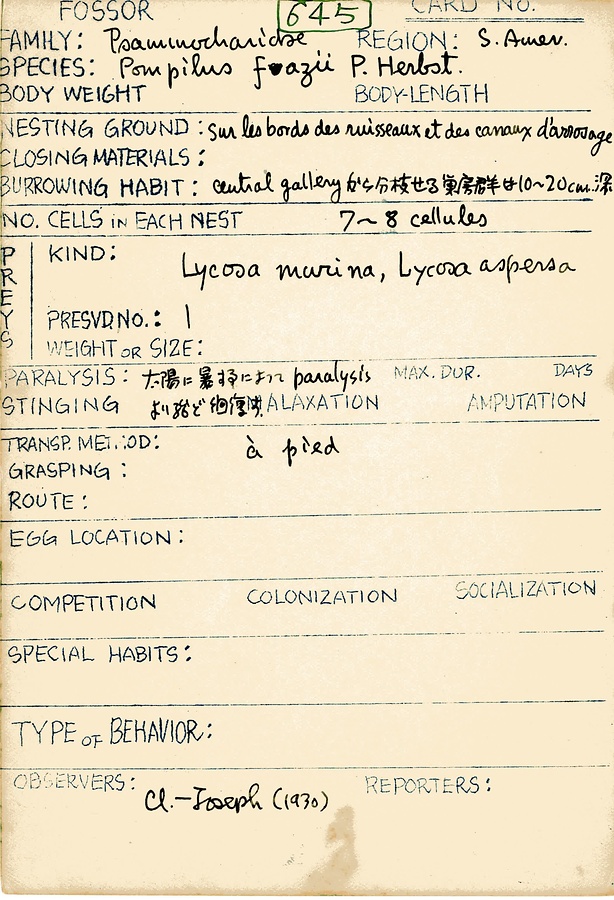 FOSSOR 645 CARD NO.
FAMILY: Psammocharidae REGION: S. Amer.
SPECIES: Pompilus frazii P. Herbst.
BODY WEIGHT BODY-LENGTH
NESTING GROUND: Sur les bords des ruisseaux et des canaux d'arrosage
CLOSING MATERIALS:
BURROWING HABIT: central gallery から分枝せる育房群は10~20cm深
NO. CELLS IN EACH NEST 7~8 cellules
PREYS
KIND: Lycosa murina, Lycosa aspersa
PRESVD NO.: 1
WEIGHT OR SIZE:
PARALYSIS: 太陽に暴すによって paralysis MAX. DUR. DAYS
STINGING より殆ど恢復す MALAXATION AMPUTATION
TRANSP. METHOD: à pied
GRASPING:
ROUTE:
EGG LOCATION:
COMPETITION COLONIZATION SOCIALIZATION
SPECIAL HABITS:
TYPE OF BEHAVIOR:
OBSERVERS: Cl.-Joseph (1930) REPORTERS: